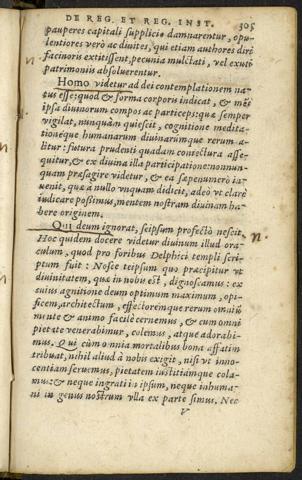 DE REG. ET REG. INST. 305
pauperes capitali supplicio damnarentur, opu-
lentiores verò ac diuites, qui etiam authores diri
facinoris extitissent, pecunia mulctati, vel exuti
patrimoniis absoluerentur.
Homo videtur ad dei contemplationem na-
tus esse: quod & forma corporis indicat, & mēs
ipsa diuinorum compos ac particeps: quæ semper
vigilat, nunquam quiescit, cognitione medita-
tionéque humanarum diuinarúmque rerum a-
litur: futura prudenti quadam coniectura asse-
quitur, & ex diuina illa participatione nonnun-
quam præsagire videtur, & ea sæpenumerò in-
uenit, quæ à nullo vnquam didicit, adeò vt clarè
iudicare possimus, mentem nostram diuinam ha-
bere originem.
Qui deum ignorat, seipsum profectò nescit.
Hoc quidem docere videtur diuinum illud ora-
culum, quod pro foribus Delphici templi scri-
ptum fuit: Nosce teipsum quo præcipitur vt
diuinitatem, quæ in nobis est, dignoscamus: ex
cuius agnitione deum optimum maximum, opi-
ficem, architectum, effectorémque rerum omniū
mente & animo facilè cernemus, & cum omni
pietate venerabimur, colemus, atque adorabi-
mus. Qui cùm omnia mortalibus bona affatim
tribuat, nihil aliud à nobis exigit, nisi vt inno-
centiam seruemus, pietatem iustitiámque cola-
mus: & neque ingrati in ipsum, neque inhuma-
ni in genus nostrum vlla ex parte simus. Nec
V
n.